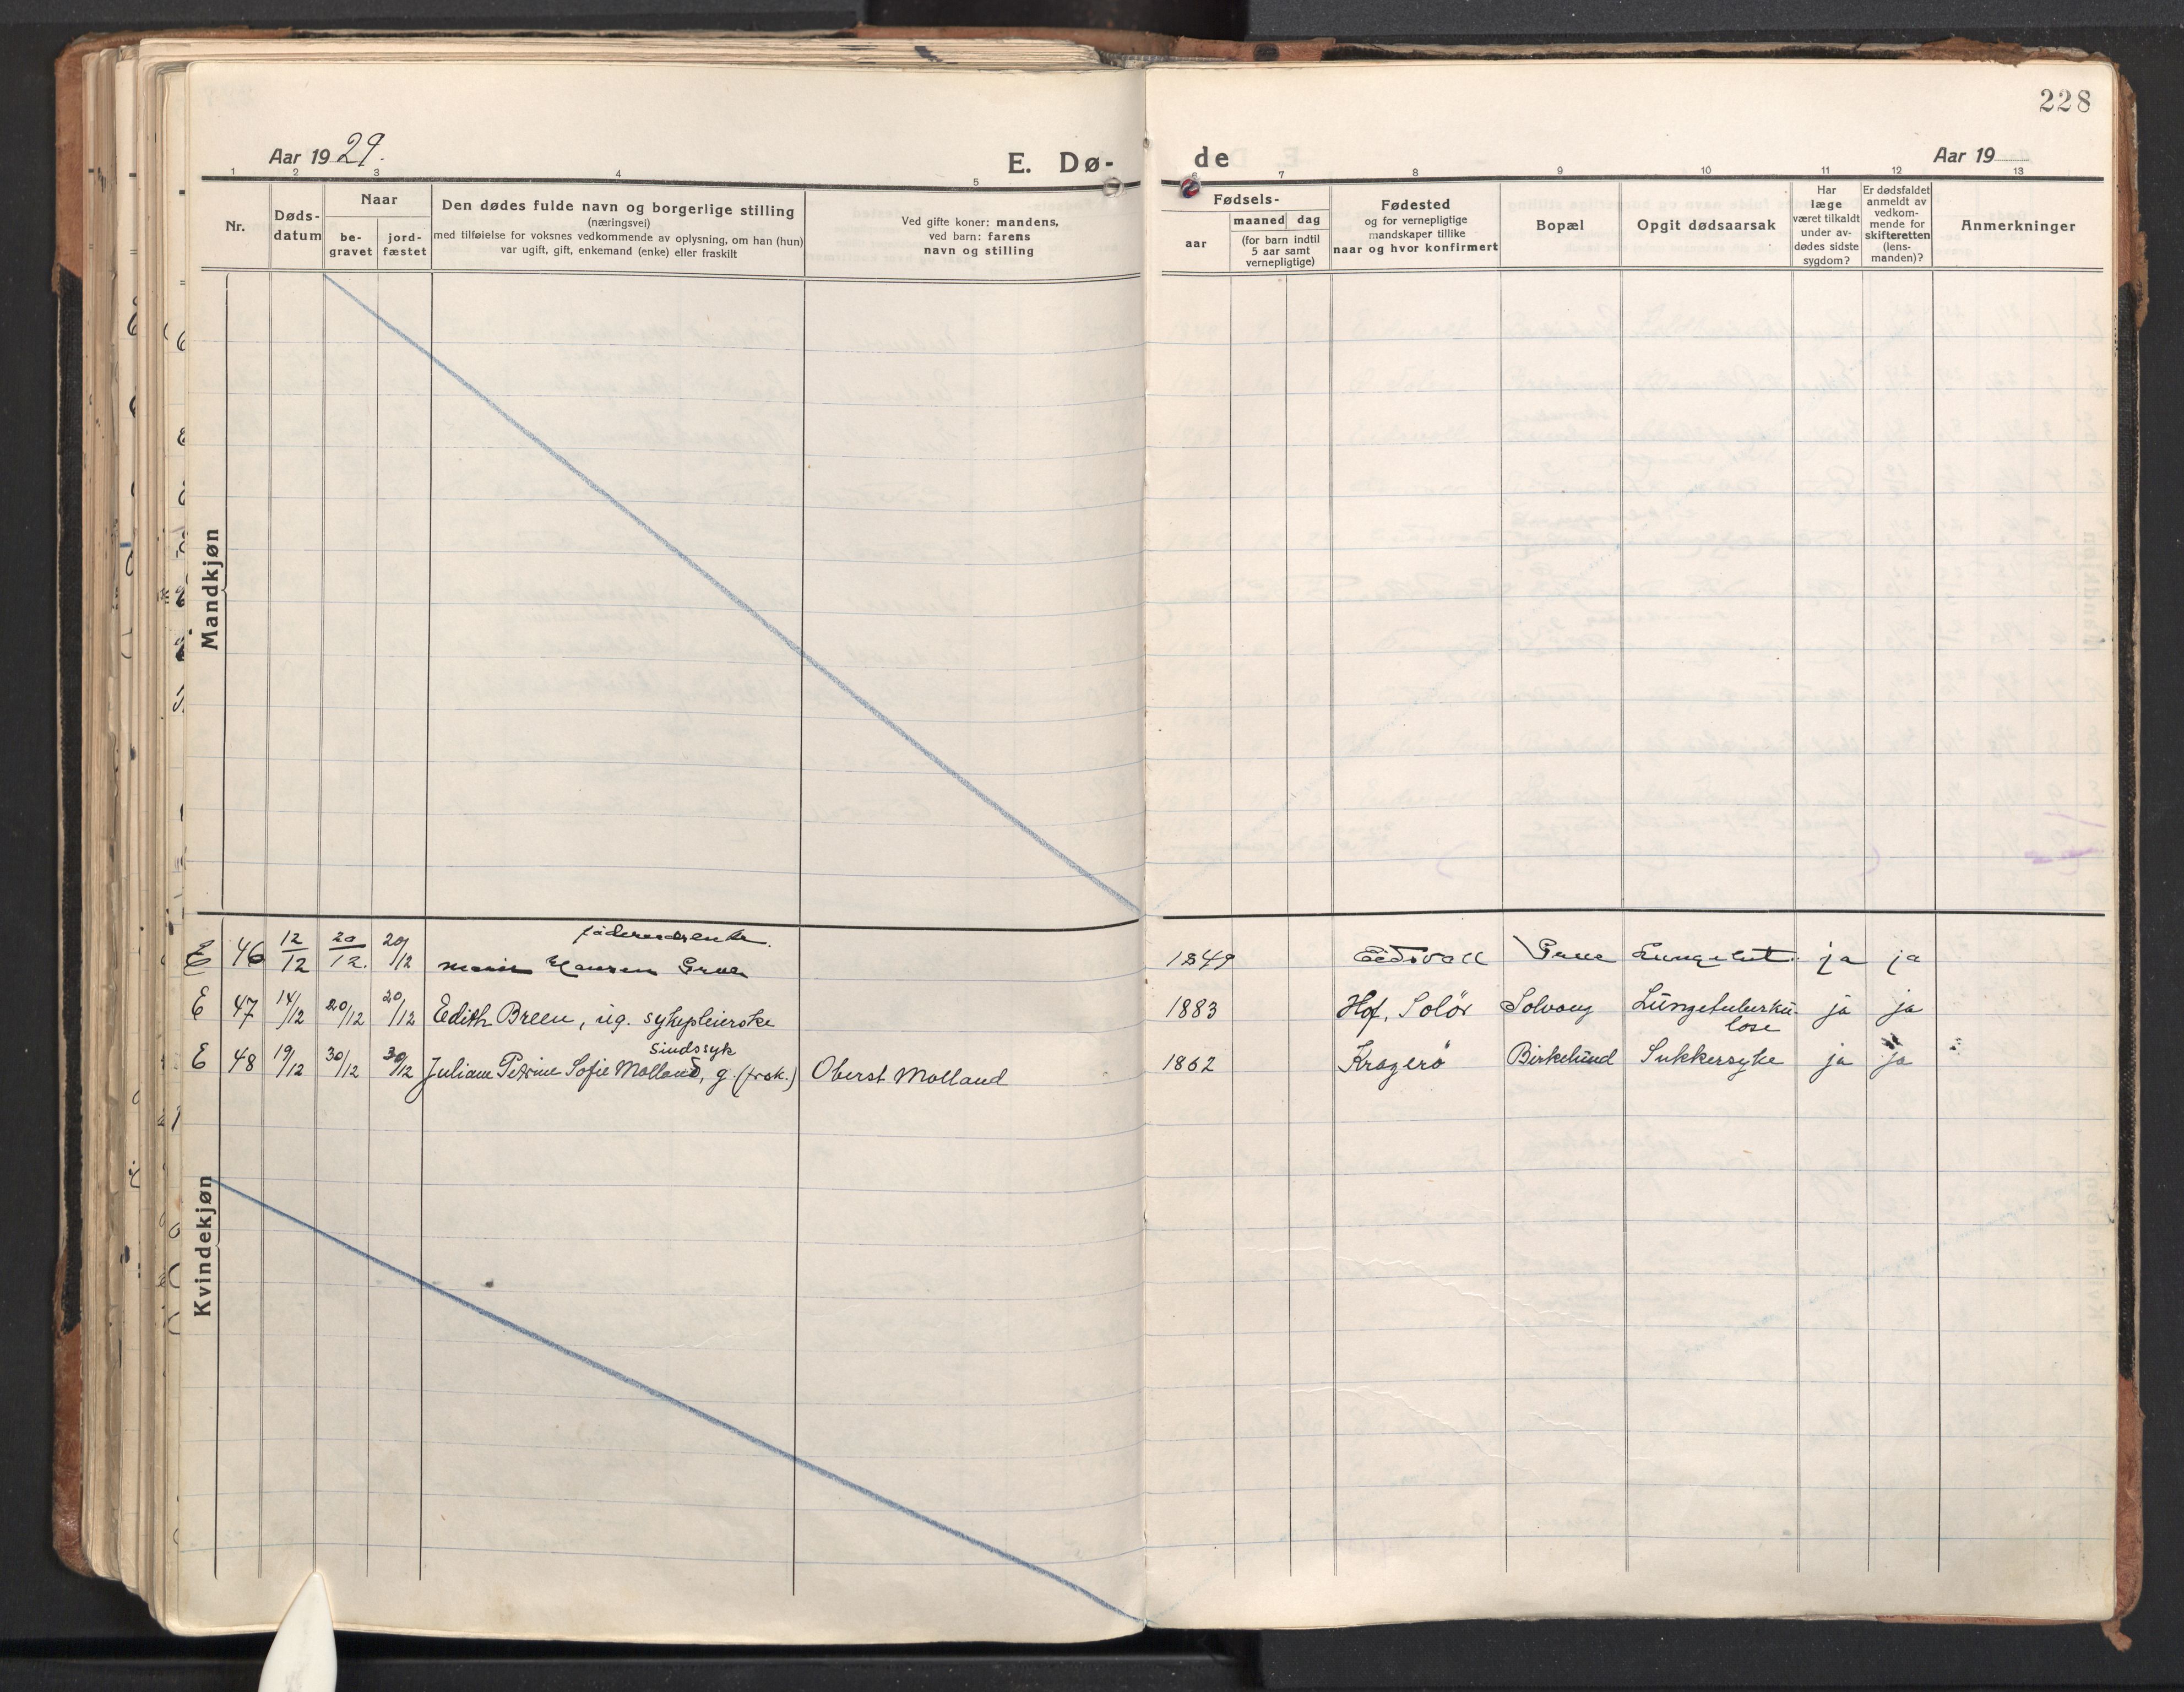 228
Aar 1929.
E. Dø-
de
Aar 19
1 2 3 4 5 6 7 8 9 10 11 12 13
Nr.
Døds-
datum
Naar
be-
gravet
jord-
fæstet
Den dødes fulde navn og borgerlige stilling
(næringsvei)
med tilføielse for voksnes vedkommende av oplysning, om han (hun)
var ugift, gift, enkemand (enke) eller fraskilt
Ved gifte koner: mandens,
ved barn: farens
navn og stilling
Fødsels-
aar
maaned dag
(for barn indtil
5 aar samt
vernepligtige)
Fødested
og for vernepligtige
mandskaper tillike
naar og hvor konfirmert
Bopæl
Opgit dødsaarsak
Har
læge
været tilkaldt
under av-
dødes sidste
sygdom?
Er dødsfaldet
anmeldt av
vedkom-
mende for
skifteretten
(lens-
manden)?
Anmerkninger
Mandkjøn
Kvindekjøn
E 46 12/12 20/12. 20/12 Marie Hansen 1849 Eidsvoll ja ja
E 47 14/12 20/12 20/12 Edith Breen, ug. sykepleierske 1883 Hof, Solör Solvang Lungetuberku-
lose ja ja
Sindssyk
E 48 19/12 30/12 30/12 Juliane Petrine Sofie Molland, g. (frsk.) Oberst Molland 1862 Kragerö Birkelund Sukkersyke ja ja